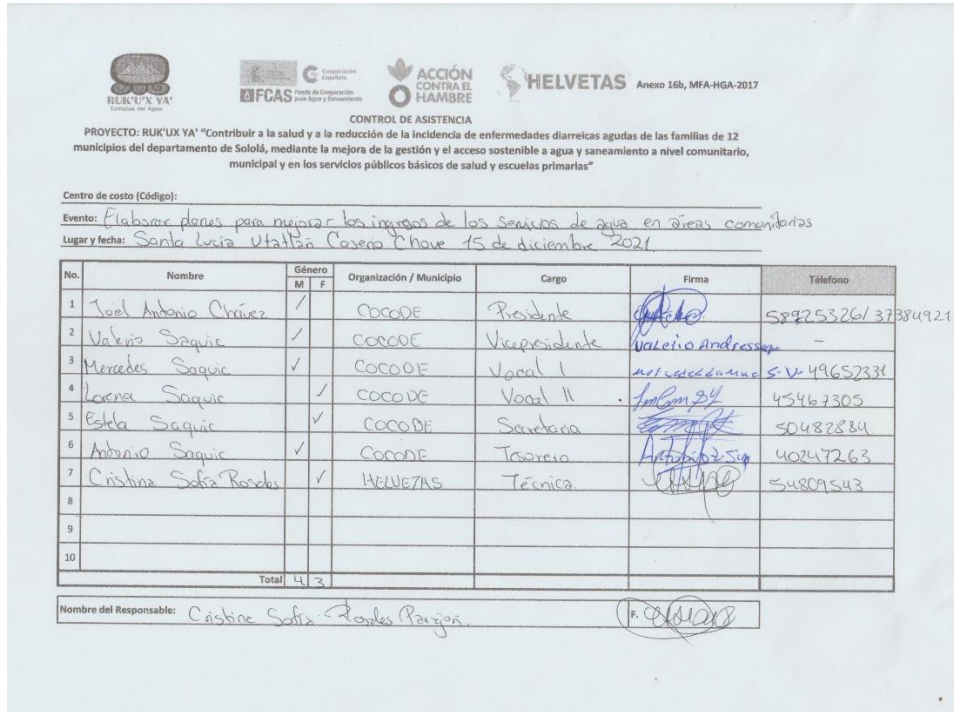 RUK'U'X YA'
Corazón del Agua
Cooperación Española
FCAS Fondo de Cooperación para Agua y Saneamiento
ACCIÓN CONTRA EL HAMBRE
HELVETAS Anexo 16b, MFA-HGA-2017
CONTROL DE ASISTENCIA
PROYECTO: RUK'UX YA' "Contribuir a la salud y a la reducción de la incidencia de enfermedades diarreicas agudas de las familias de 12
municipios del departamento de Sololá, mediante la mejora de la gestión y el acceso sostenible a agua y saneamiento a nivel comunitario,
municipal y en los servicios públicos básicos de salud y escuelas primarias"
Centro de costo (Código):
Evento: Elaborar planes para mejorar los ingresos de los servicios de agua en áreas comunitarias
Lugar y fecha: Santa Lucia Utatlán Caserio Chove 15 de diciembre 2021
No. Nombre Género M F Organización / Municipio Cargo Firma Télefono
1 Joel Antonio Chávez / COCODE Presidente 58925326/37384921
2 Valerio Saquic ✓ COCODE Vicepresidente Valerio Andres –
3 Mercedes Saquic ✓ COCODE Vocal I 49652331
4 Lorena Saquic ✓ COCODE Vocal II 45467305
5 Estela Saquic ✓ COCODE Secretaria 50482884
6 Antonio Saquic ✓ COCODE Tesorero 40247263
7 Cristina Sofía Rosales ✓ HELVETAS Técnica 54809543
8
9
10
Total 4 3
Nombre del Responsable: Cristina Sofía Rosales F.